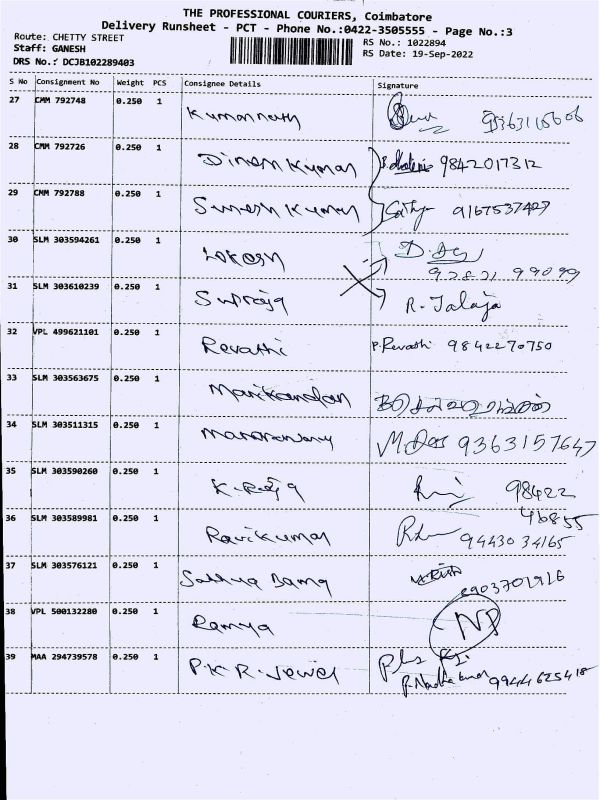 THE PROFESSIONAL COURIERS, Coimbatore
Delivery Runsheet - PCT - Phone No.:0422-3505555 - Page No.:3
Route: CHETTY STREET
RS No.: 1022894
Staff: GANESH
RS Date: 19-Sep-2022
DRS No.: DCJB102289403
S No Consignment No Weight PCS Consignee Details Signature
27 CMM 792748 0.250 1 Kumannath
28 CMM 792726 0.250 1 Dinesh Kumar 9842017312
29 CMM 792788 0.250 1 Suresh Kumar Sathya 9167537427
30 SLM 303594261 0.250 1 Lokesh
92821 99099
31 SLM 303610239 0.250 1 Supraja R. Jalaja
32 VPL 499621101 0.250 1 Revathi P. Revathi 9842270750
33 SLM 303563675 0.250 1 Manikandan
34 SLM 303511315 0.250 1 9363157647
35 SLM 303590260 0.250 1 K. Raja 98422
46855
36 SLM 303589981 0.250 1 Ravikumar 94430 34165
37 SLM 303576121 0.250 1 Sathya Bama
38 VPL 500132280 0.250 1 Ramya NP
39 MAA 294739578 0.250 1 P.K.R. Jewel
9944625418